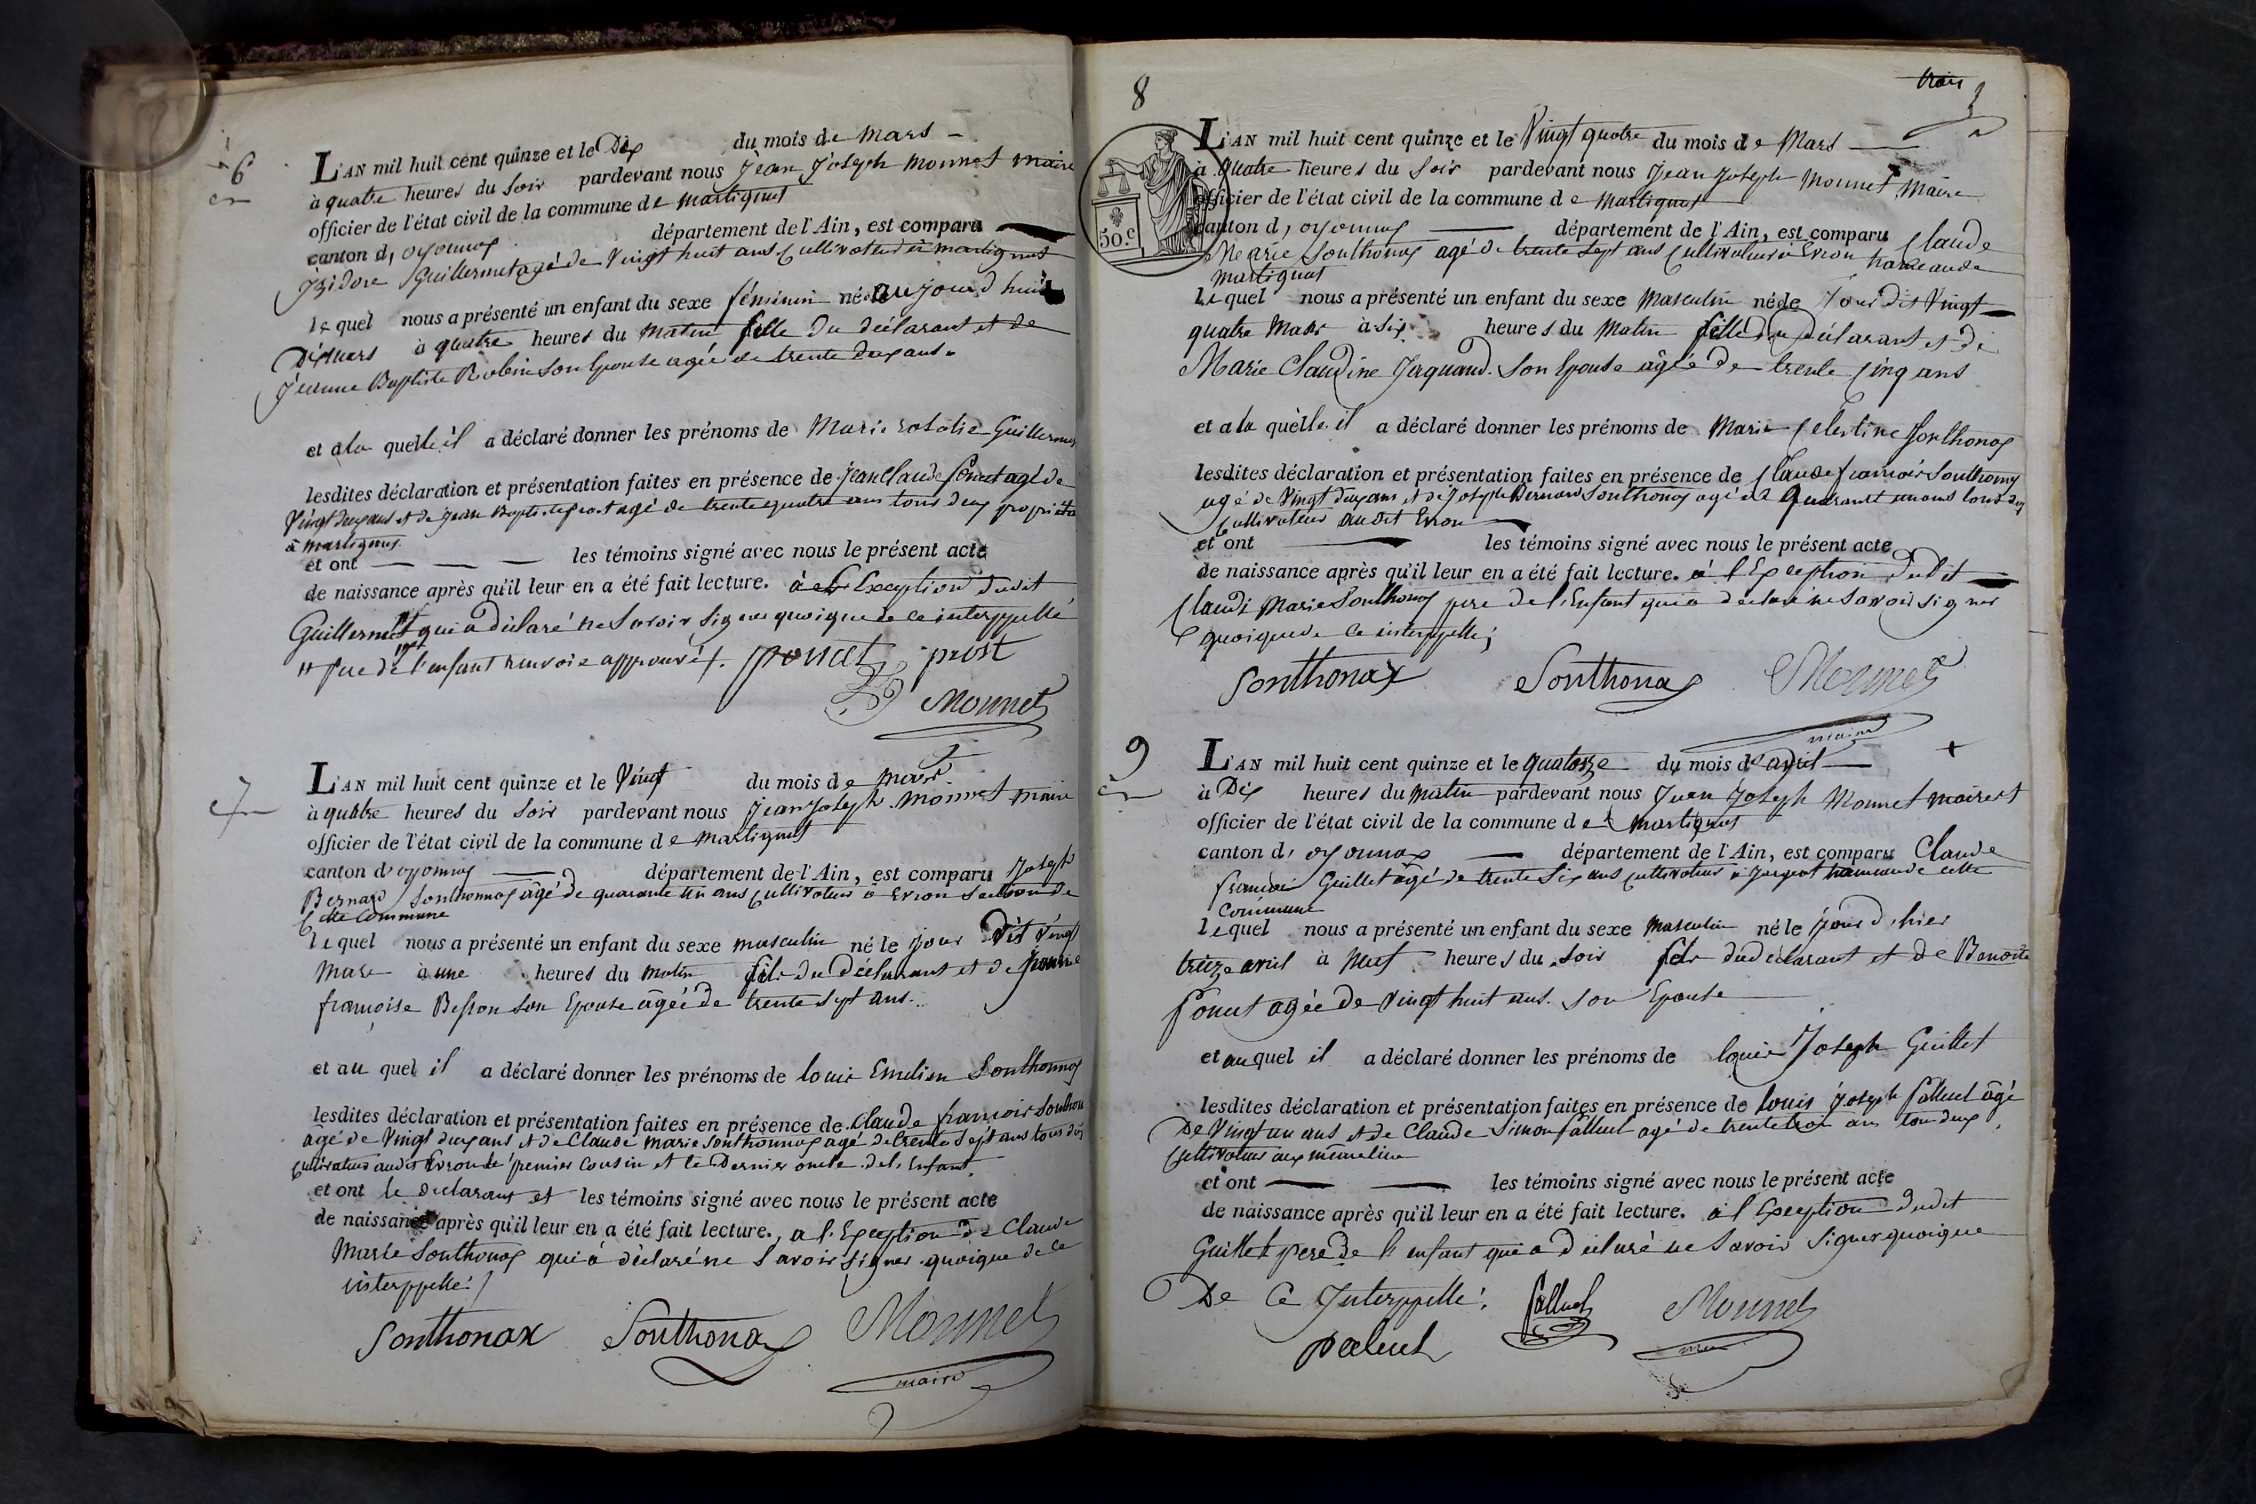 6
L'AN mil huit cent quinze et le Dix du mois de Mars
à quatre heures du Soir pardevant nous Jean Joseph Monnet maire
officier de l'état civil de la commune de Martignat
canton d'oyonnax département de l'Ain, est comparu
izidore Guillermet agé de Vingt huit ans Cultivateur à martignat
lequel nous a présenté un enfant du sexe féminin né aujourd'hui
Dix mars à quatre heures du matin fille Du déclarant et de
Jeanne Baptiste Robin Son Epouse agée de trente deux ans
et a la quelle il a déclaré donner les prénoms de Marie Guillermet
lesdites déclaration et présentation faites en présence de Jean Claude Poncet agé de
Vingt deux ans et de Jean Baptiste prost agé de trente quatre ans tous deux
à martignat
et ont les témoins signé avec nous le présent acte
de naissance après qu'il leur en a été fait lecture. à l'Exception dudit
Guillermet qui a déclaré ne Savoir Signer quoique de ce interppellé
pere de l'enfant renvoie approuvé. poncet prost
Monnet
7
L'AN mil huit cent quinze et le Vingt du mois de mars
à quatre heures du Soir pardevant nous Jean Joseph Monnet maire
officier de l'état civil de la commune de Martignat
canton d'oyonnax département de l'Ain, est comparu Joseph
Bernard Sonthonnax âgé de quarante un ans Cultivateur à Evron Section de
Cette Commune
lequel nous a présenté un enfant du sexe masculin né le jour Dit Vingt
Mars à une heures du matin fils du Déclarant et de
françoise Besson Son Epouse âgée de trente Sept ans.
et au quel il a déclaré donner les prénoms de louis Emelien Sonthonnax
lesdites déclaration et présentation faites en présence de Claude françois
âgé de Vingt deux ans et de Claude Marie Sonthonnax agé de trente Sept ans tous deux
Cultivateurs audit Evron le premier Cousin et le Dernier oncle de l'Enfant
et ont le declarant et les témoins signé avec nous le présent acte
de naissance après qu'il leur en a été fait lecture, a l'Exception de Claude
Marie Sonthonax qui à déclaré ne Savoir Signer quoique de ce
interppellé
Sonthonax Sonthonax Monnet
maire
trois
3
8
50.c
L'AN mil huit cent quinze et le Vingt quatre du mois de Mars
à quatre heures du Soir pardevant nous Jean Joseph Monnet Maire
officier de l'état civil de la commune de Martignat
canton d'oyonnax département de l'Ain, est comparu Claude
Marie Sonthonax agé de trente Sept ans Cultivateur à Evron hameau de
Martignat
lequel nous a présenté un enfant du sexe Masculin né le Jour dit Vingt
quatre Mars à Six heures du Matin fille du déclarant et de
Marie Claudine Jaquand. Son Epouse âgée de trente Cinq ans
et a la quèlle il a déclaré donner les prénoms de Marie Celestine Sonthonax
lesdites déclaration et présentation faites en présence de Claude francois Sonthonax
agé de Vingt deux ans et de Joseph Bernard Sonthonax agé de quarante un ans tous deux
Cultivateurs audit Evron
et ont les témoins signé avec nous le présent acte
de naissance après qu'il leur en a été fait lecture. à l'Exception dudit
Claude Marie Sonthonax pere de l'Enfant qui a déclaré ne Savoir signer
quoique de Ce interppellé;
Sonthonax Sonthonax Monnet
maire
9
L'AN mil huit cent quinze et le quatorze du mois d'avril
à Dix heures du Matin pardevant nous Jean Joseph Monnet maire et
officier de l'état civil de la commune de Martignat
canton d'oyonnax département de l'Ain, est comparu Claude
françois Guillet âgé de trente Six ans cultivateur à hameau de cette
Commune
lequel nous a présenté un enfant du sexe Masculin né le jour d'hier
treize avril à Neuf heures du Soir fils du déclarant et de Benoite
Poncet agée de Vingt huit ans. Son Epouse
et au quel il a déclaré donner les prénoms de louis Joseph Guillet
lesdites déclaration et présentation faites en présence de Louis Joseph âgé
De Vingt un ans et de Claude Simon agé de trente trois ans tous deux
Cultivateurs
et ont les témoins signé avec nous le présent acte
de naissance après qu'il leur en a été fait lecture. à l'Exception dudit
Guillet pere de l'enfant qui a déclaré ne Savoir Signer quoique
De Ce Interppellé.
Monnet